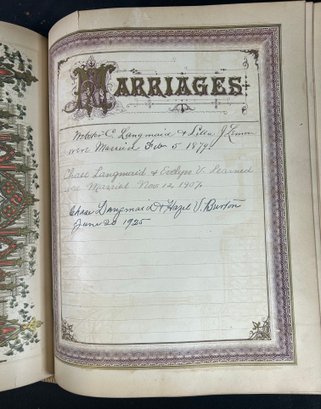 MARRIAGES.
Webster C. Langmaid & Lilla J. Lemon
were Married Feb 5 1879.
Chase Langmaid & Evelyn V. Learned
were Married Nov. 14 1907
Chase Langmaid & Hazel V. Burton
June 20 1925